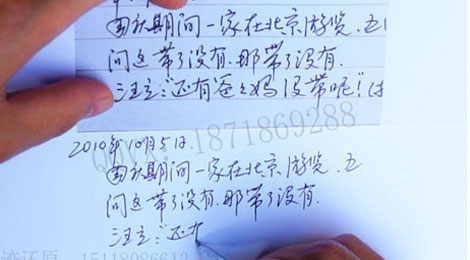 国庆期间一家在北京游览.五
问这带了没有.那带了没有.
汪立:"还有爸々妈没带呢"
QQ/VX:1871869288
2010年10月5日.
国庆期间一家在北京游览.五
问这带了没有.那带了没有.
汪立:"还
迹还原 15118086613